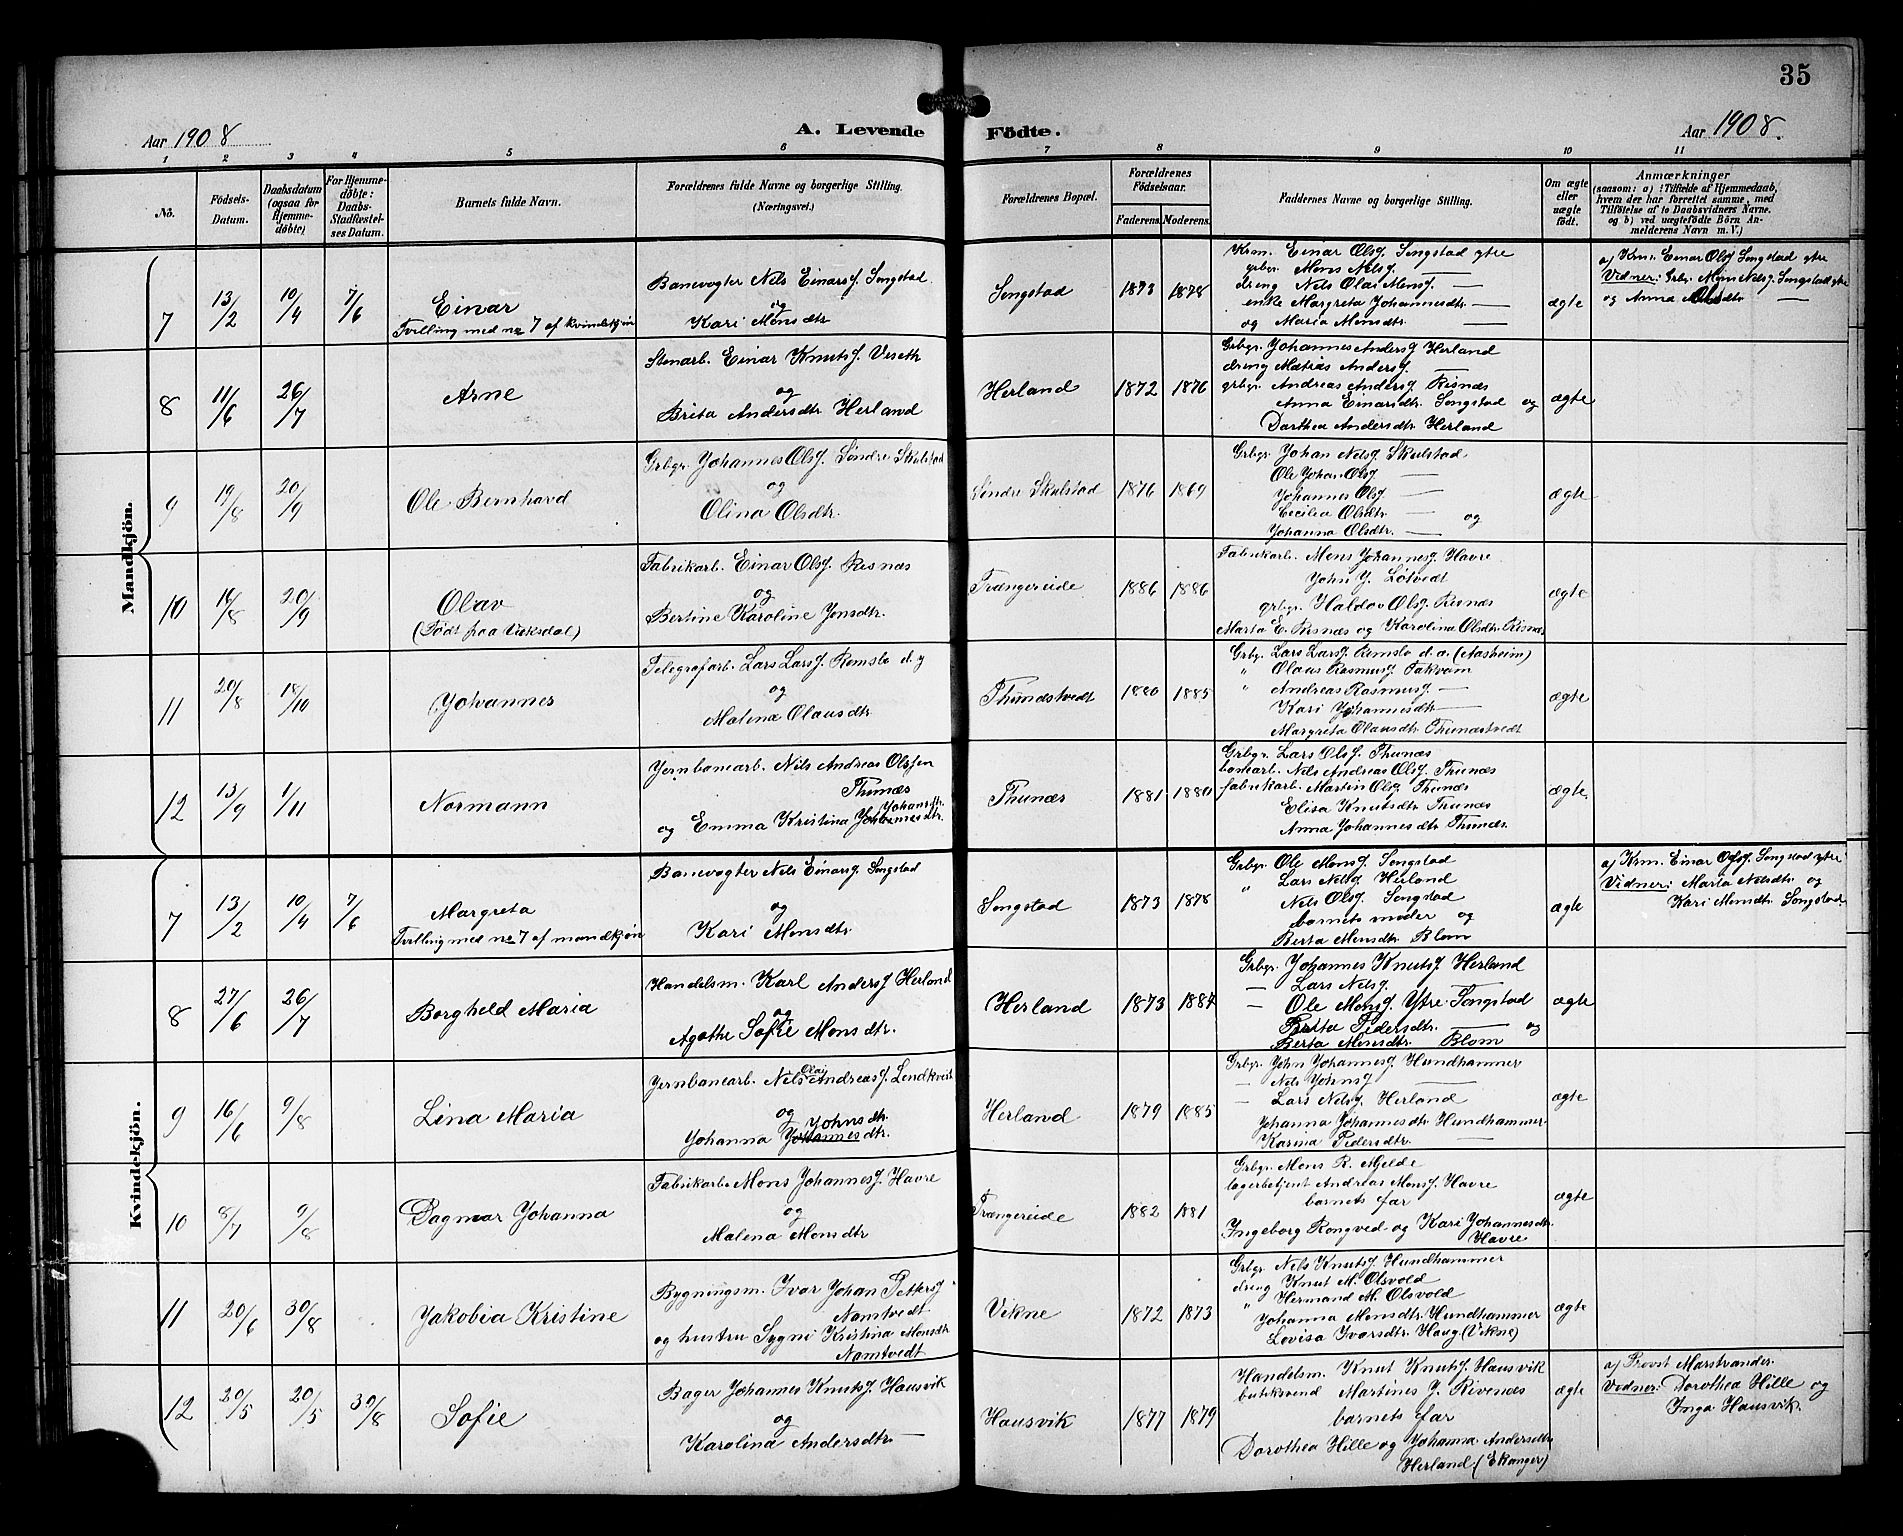 35
Aar 1908
A. Levende
Födte.
Aar 1908.
1 2 3 4 5 6 7 8 9 10 11
No.
Födsels-
Datum.
Daabsdatum
(ogsaa for
Hjemme-
døbte)
For Hjemme-
døbte:
Daabs-
Stadfæstel-
ses Datum.
Barnets fulde Navn.
Forældrenes fulde Navne og borgerlige Stilling.
(Næringsvei.)
Forældrenes Bopæl.
Forældrenes
Födselsaar.
Faderens.
Moderens.
Faddernes Navne og borgerlige Stilling.
Om ægte
eller
uægte
født.
Anmærkninger
(saasom: a) i Tilfælde af Hjemmedaab,
hvem der har forrettet samme, med
Tilföielse af to Daabsvidners Navne.
og b) ved uægtefödte Börn An-
melderens Navn m. V.)
Mandkjön.
7 13/2 10/4 7/6
Einar
Tvilling med no 7 af kvindekjøn
Banevogter Nils Einarsf. Songstad
og
Kari Monsdtr
Songstad
1873 1878
Krm. Einar Olsf. Songstad ytre
grbgr. Mons Nilsf. —
dreng Nils Olai Monsf. —
enke Margreta Johannesdtr —
og Maria Monsdtr. —
ægte
a) Krm. Einar Olsf. Songstad ytre
Vidner: Grbr. Mons Nilsf. Songstad ytre
og Anna Olsdtr —
8 11/6 26/7
Arne
Stenarb. Einar Knutsf. Veseth
og
Brita Andersdtr Herland
Herland
1872 1876
Grbgr. Johannes Andersf Herland
dreng Matias Andersf. —
grbgr. Andreas Andersf Risnæs
Anna Einarsdtr. Songstad og
Dorthea Andersdtr Herland
ægte
9 19/8 20/9
Ole Bernhard
Grbgr. Johannes Olsf. Søndre Skulstad
og
Olina Olsdtr.
Søndre Skulstad
1876 1869
Grbgr. Johan Nilsf. Skulstad
Ole Johan Olsf —
Johannes Olsf —
Cecilia Olsdtr. — og
Johanna Olsdtr. —
ægte
10 14/8 20/9
Olav
(Født paa Vaksdal)
Fabrikarb. Einar Olsf. Risnæs
og
Bertine Karoline Jonsdtr.
Trængereide
1886 1886
Fabrikarb. Mons Johannesf Havre
John J. Løtvedt
grbgr. Haldor Olsf. Risnæs
Marta E. Risnæs og Karolina Olsdtr. Risnæs
ægte
11 20/8 18/10
Johannes
Telegrafarb. Lars Larsf. Romslo d.y
og
Malena Olausdtr
Thunestvedt
1880 1885
Grbg. Lars Larsf. Romslo d.æ. (Aasheim)
" Olaus Rasmusf Takvam
" Andreas Rasmusf —
Kari Johannesdtr —
Margreta Olausdtr Thunestvedt
ægte
12 13/9 1/11
Normann
Jernbanearb. Nils Andreas Olsfen
Thunæs
og Emma Kristina Johannesdtr. Johansdtr.
Thunæs
1881 1880
Grbgr. Lars Olsf. Thunæs
banearb. Nils Andreas Olsf. Thunæs
fabrikarb. Martin Olsf Thunæs
Elisa Knutsdtr Thunæs
Anna Johannesdtr Thunæs
ægte.
Kvindekjön.
7 13/2 10/4 7/6
Margreta
Tvilling med no 7 af mandkjøn
Banevogter Nils Einarsf. Songstad
og
Kari Monsdtr
Songstad
1873 1878
Grbgr. Ole Monsf. Songstad
" Lars Nilsf Herland
Nils Olsf. Songstad
barnets moder og
Berta Monsdtr. Blom
ægte
a) Krm. Einar Olsf. Songstad ytre
Vidner: Marta Nilsdtr. og
Kari Monsdtr Songstad
8 27/6 26/7
Borghild Maria
Handelsm. Karl Andersf Herland
og
Agathe Sofie Monsdtr.
Herland
1873 1884
Grbgr. Johannes Knutsf Herland
— Lars Nilsf —
— Ole Monsf Ytre Songstad
Brita Pedersdtr. — og
Berta Monsdtr. Blom
ægte
9 16/6 9/8
Lina Maria
Jernbanearb. Nils Olai Andreasf. Lendkvist
og
Johanna Johannesdtr. Johnsdtr.
Herland
1879 1885
Grbgr. John Johannesf Hundhammer
— Nils Johnsf —
— Lars Nilsf Herland
Johanna Johannesdtr Hundhammer
Karina Pedersdtr. —
ægte
10 8/7 9/8
Dagmar Johanna
Fabrikarb. Mons Johannesf. Havre
og
Malena Monsdtr
Trængereide
1882 1881
Grbgr. Mons R. Mjelde
lagerbetjent Andreas Monsf. Havre
barnets far
Ingeborg Rongved og Kari Johannesdtr.
Havre
ægte
11 20/6 30/8
Jakobia Kristine
Bygningsm. Ivar Johan Pettersf
Namtvedt
og hustru Sygni Kristina Monsdtr
Namtvedt
Vikne
1872 1873
Grbgr. Nils Knutsf. Hundhammer
dreng Knut M. Olsvold
" Hermand M. Olsvold
Johanna Monsdtr. Hundhammer
Lovisa Ivarsdtr. Haug (Vikne)
ægte
12 20/5 20/5 30/8
Sofie
Bager Johannes Knutsf. Hausvik
og
Karolina Andersdtr. —
Hausvik
1877 1879
Handelsm. Knut Knutsf. Hausvik
butiksvend Martines J. Rivenæs
barnets far
Dorothea Hille og Johanna Andersdtr
Herland. (Ekanger)
ægte
a) Provst Marstrander.
Vidner: Dorothea Hille og
Inga Hausvik.